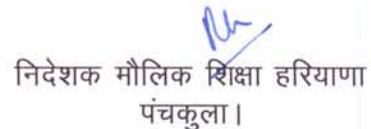 निदेशक मौलिक शिक्षा हरियाणा
पंचकुला।